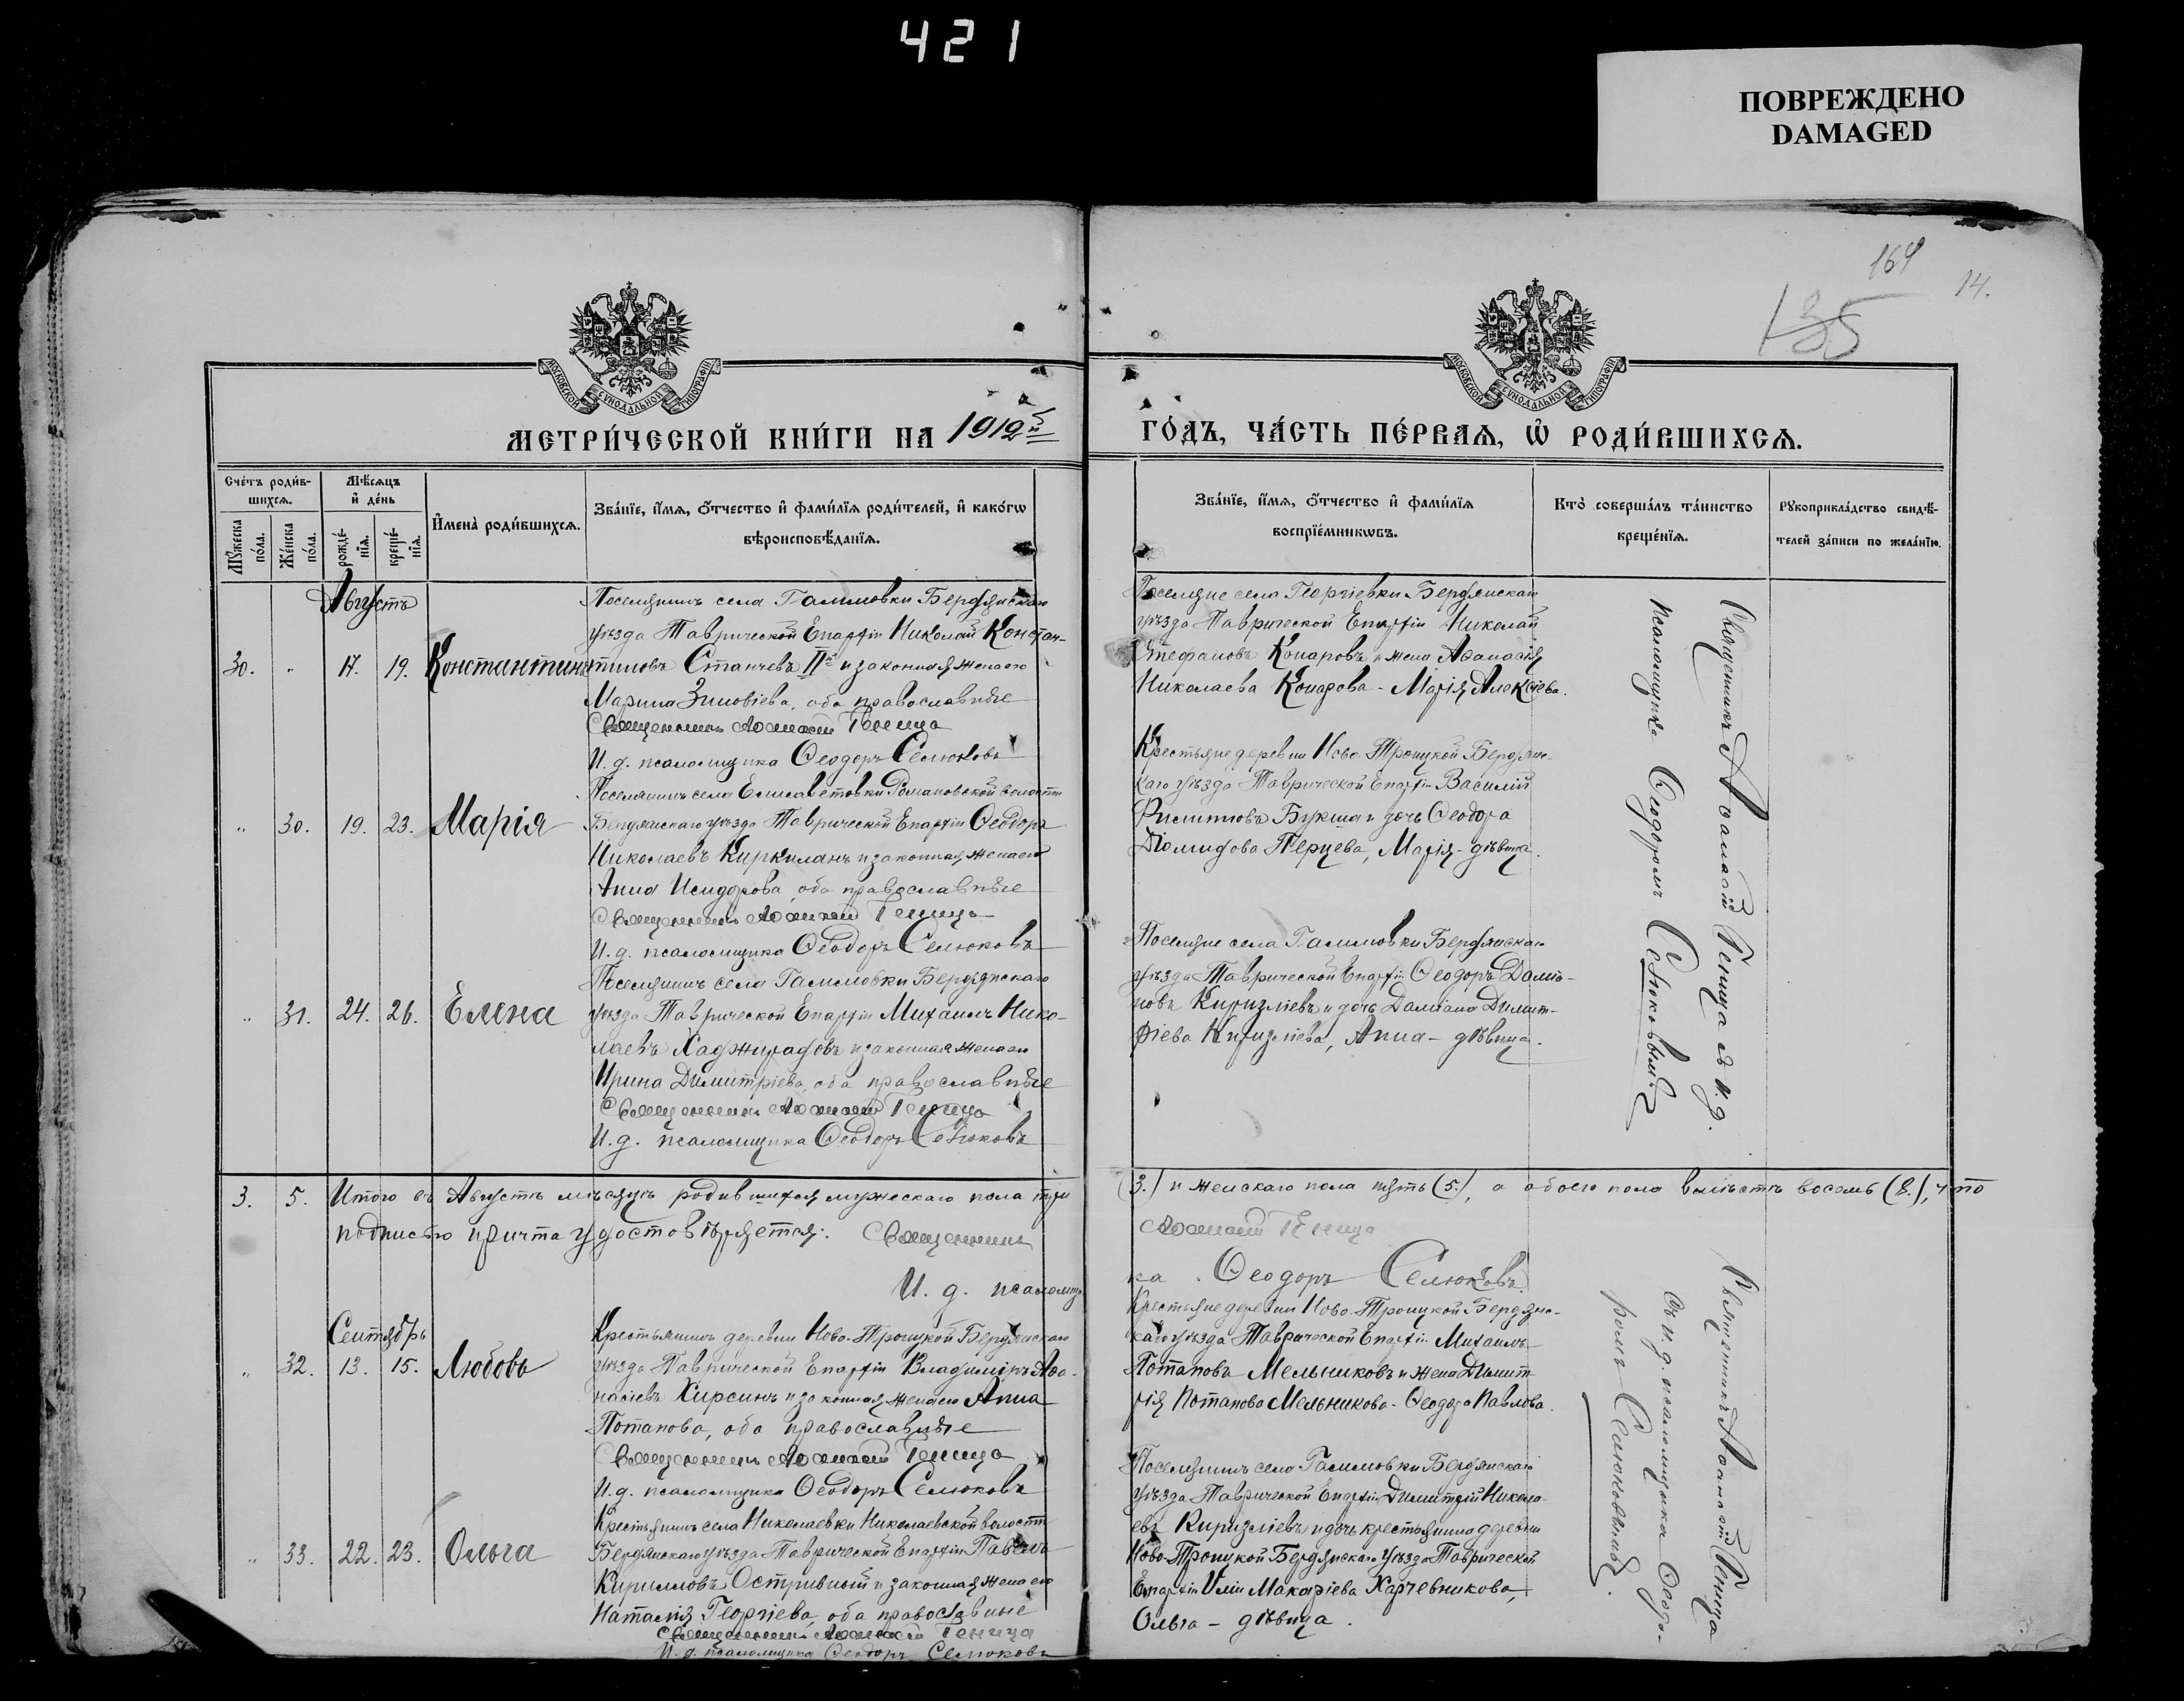 421
ПОВРЕЖДЕНО
DAMAGED
164
14.
135
МОСКОВСКОЙ СѴНОДАЛЬНОЙ ТИПОГРАФІИ
МОСКОВСКОЙ СѴНОДАЛЬНОЙ ТИПОГРАФІИ
МЕТРИ́ЧЕСКОЙ КНИ́ГИ НА 1912й
ГО́ДЪ, ЧА́СТЬ ПЕ́РВАѦ, Ѡ҆ РОДИ́ВШИХСѦ.
Сче́тъ роди́в-
шихсѧ.
Мѣ́сѧцъ
и҆ де́нь
Мꙋ́жеска по́ла.
Же́нска по́ла.
рожде́-
нїѧ.
креще́-
нїѧ.
И҆мена̀ роди́вшихсѧ.
Зва́нїе, и҆́мѧ, ѻ҆́тчество и҆ фами́лїѧ роди́телей, и҆ како́гѡ
вѣроисповѣ́данїѧ.
Зва́нїе, и҆́мѧ, ѻ҆́тчество и҆ фами́лїѧ
воспрїе́мникѡвъ.
Кто̀ соверша́лъ та́инство
креще́нїѧ.
Рꙋкоприкла́дство свидѣ́-
телей за́писи по жела́нїю.
Августъ
30. " 17. 19. Константинъ
Поселянинъ села Галимовки Бердянскаго
уѣзда Таврической Епархіи Николай Констан-
тиновъ Станчевъ IIй и законная жена его
Марина Зиновіева, оба православные
Священникъ Аѳанасій Геница
И. д. псаломщика Ѳеодоръ Селюковъ
Поселяне села Георгіевки Бердянскаго
уѣзда Таврической Епархіи Николай
Стефановъ Конаровъ и жена Аѳанасія
Николаева Конарова - Марія Алексіева.
" 30. 19. 23. Марія
Поселянинъ села Елисаветовки Романовской волости
Бердянскаго уѣзда Таврической Епархіи Ѳеодоръ
Николаевъ Киркиланъ и законная жена его
Анна Исидорова, оба православные
Священникъ Аѳанасій Геница
И. д. псаломщика Ѳеодоръ Селюковъ
Крестьяне деревни Ново-Троицкой Бердянс-
каго уѣзда Таврической Епархіи Василій
Филипповъ Букша и дочь Ѳеодора
Діомидова Перцева, Марія - дѣвица.
" 31. 24. 26. Елена
Поселянинъ села Галимовки Бердянскаго
уѣзда Таврической Епархіи Михаилъ Нико-
лаевъ Хаджирадовъ и законная жена его
Ирина Димитріева, оба православные
Священникъ Аѳанасій Геница
И. д. псаломщика Ѳеодоръ Селюковъ
Поселяне села Галимовки Бердянскаго
уѣзда Таврической Епархіи Ѳеодоръ Даміа-
новъ Киризліевъ и дочь Даміана Димит-
ріева Киризліева, Анна - дѣвица.
Священникъ Аѳанасій Геница съ и. д.
псаломщика Ѳеодоромъ Селюковымъ
3. 5. Итого въ Августѣ мѣсяцѣ родившихся мужескаго пола три
(3.) и женскаго пола пять (5.), а обоего пола вмѣстѣ восемь (8.), что
подписью причта удостовѣряется: Священникъ
Аѳанасій Геница
И. д. псаломщи-
ка Ѳеодоръ Селюковъ.
Сентябрь
" 32. 13. 15. Любовь
Крестьянинъ деревни Ново-Троицкой Бердянскаго
уѣзда Таврической Епархіи Владиміръ Аѳа-
насіевъ Хирсинъ и законная жена его Анна
Потапова, оба православные
Священникъ Аѳанасій Геница
И. д. псаломщика Ѳеодоръ Селюковъ
Крестьяне деревни Ново-Троицкой Бердянс-
каго уѣзда Таврической Епархіи Михаилъ
Потаповъ Мельниковъ и жена Димит-
рія Потапова Мельникова - Ѳеодора Павлова.
" 33. 22. 23. Ольга
Крестьянинъ села Николаевки Николаевской волости
Бердянскаго уѣзда Таврической Епархіи Павелъ
Кирилловъ Остривный и законная жена его
Наталія Георгіева, оба православные
Священникъ Аѳанасій Геница
И. д. псаломщика Ѳеодоръ Селюковъ
Поселянинъ села Галимовки Бердянскаго
уѣзда Таврической Епархіи Димитрій Никола-
евъ Киризліевъ и дочь крестьянина деревни
Ново-Троицкой Бердянскаго уѣзда Таврической
Епархіи Иліи Макаріева Харчевникова,
Ольга - дѣвица.
Священникъ Аѳанасій Геница
съ и. д. псаломщика Ѳеодо-
ромъ Селюковымъ.